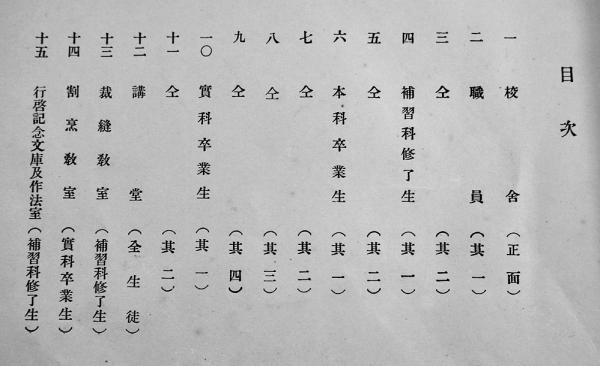 目次
一 校舎（正面）
二 職員（其一）
三 仝（其二）
四 補習科修了生（其一）
五 仝（其二）
六 本科卒業生（其一）
七 仝（其二）
八 仝（其三）
九 仝（其四）
一〇 實科卒業生（其一）
十一 仝（其二）
十二 講堂（全生徒）
十三 裁縫敎室（補習科修了生）
十四 割烹敎室（實科卒業生）
十五 行啓記念文庫及作法室（補習科修了生）